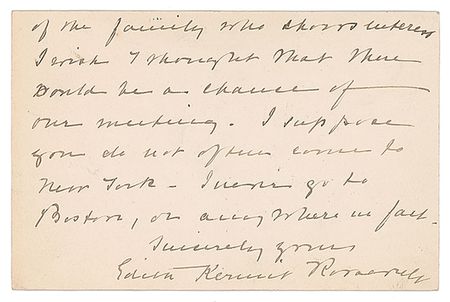 of the family who shows interest
I wish I thought that there
would be a chance of
our meeting. I suppose
you do not often come to
New York - I never go to
Boston, or anywhere in fact.
Sincerely yours
Edith Kermit Roosevelt